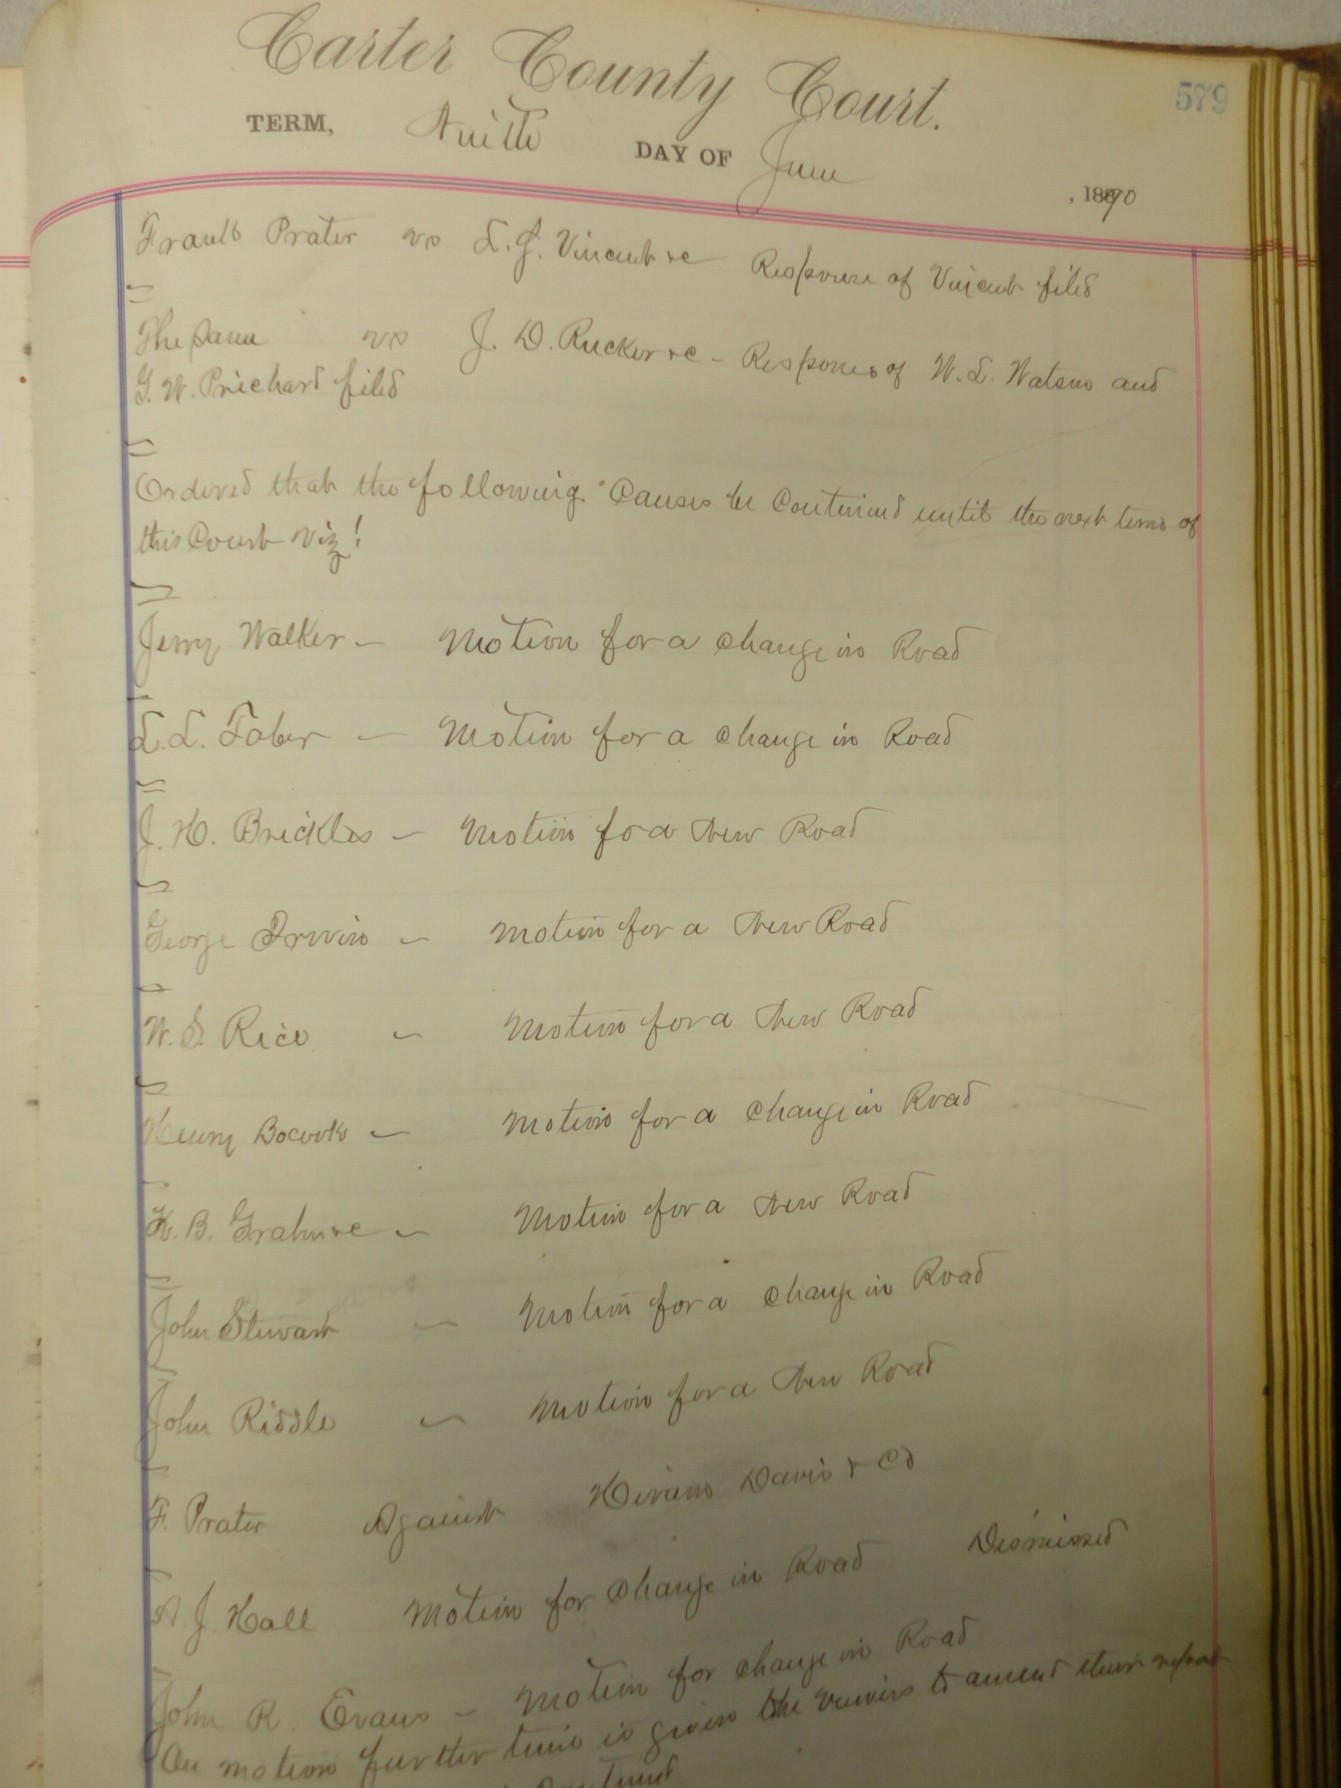 Carter County Court.
579
TERM, Ninth DAY OF June, 1890
Frank Prater vs L. J. Vincent &c Response of Vincent filed
The Same vs J. D. Rucker &c - Response of W. L. Watson and
G. W. Prichard filed
Ordered that the following Causes be Continued until the next term of
this Court viz!
Jerry Walker - Motion for a change in Road
L. L. Faber - Motion for a change in Road
J. H. Brickles - Motion fo a New Road
George Irwin - Motion for a New Road
W. S. Rice - Motion for a New Road
Henry Bocook - Motion for a change in Road
H. B. Grahn &c - Motion for a New Road
John Stewart - Motion for a change in Road
John Riddle - Motion for a New Road
F. Prater Against Hiram Davis & Co
A. J. Hall Motion for change in Road Dismissed
John R. Evans - Motion for change in Road
On motion further time is given the viewers to amend their report
Continued